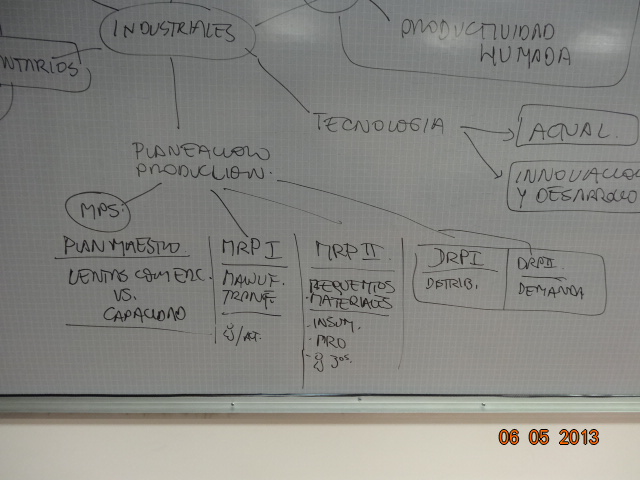 INDUSTRIALES
PRODUCTIVIDAD
HUMADA
NTARIOS
TECNOLOGIA
ACTUAL.
INNOVACIO
Y DESARROLLO
PLANEACION
PRODUCCION.
MPS:
PLAN MAESTRO
VENTAS COMERC.
VS.
CAPACIDAD
MRP I
MANUF.
TRANF.
MRP II.
REQUEMTOS
MATERIALES
· INSUM.
· PRO
3os.
DRP I
DISTRIB.
DRP II.
DEMANDA
06 05 2013